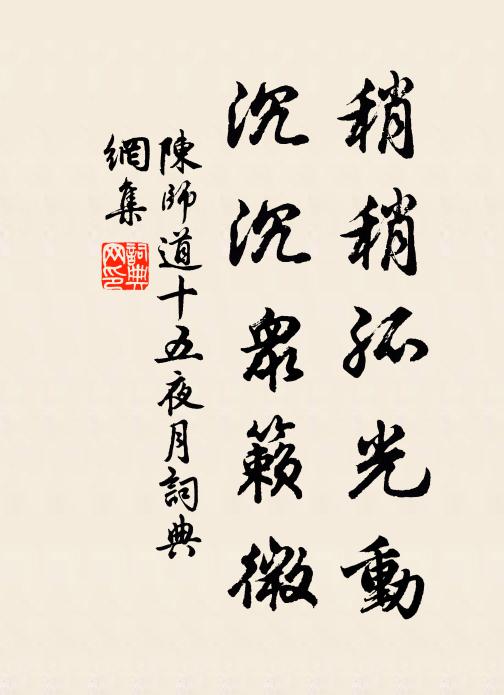 稍稍孤光動
沉沉眾籟微
陳師道十五夜月詞典
網集
詞典網印